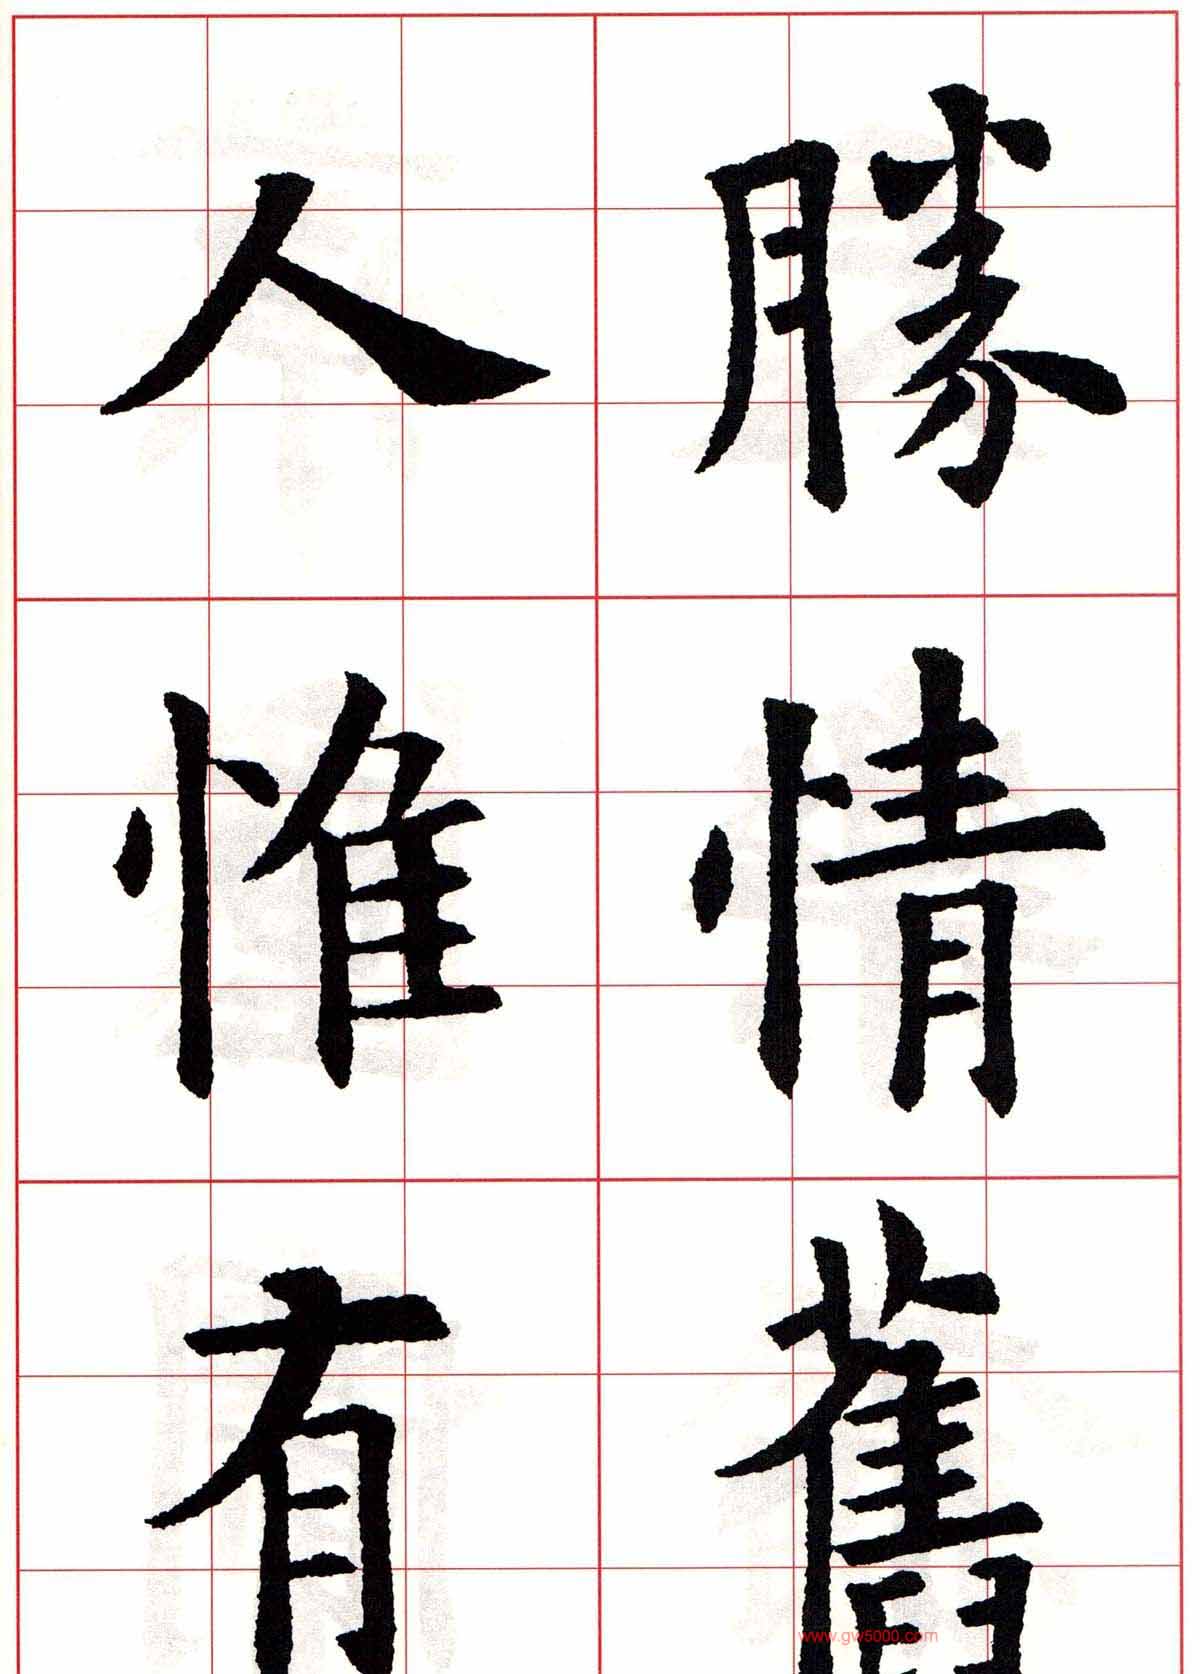 勝情舊
人惟有
www.gw5000.com